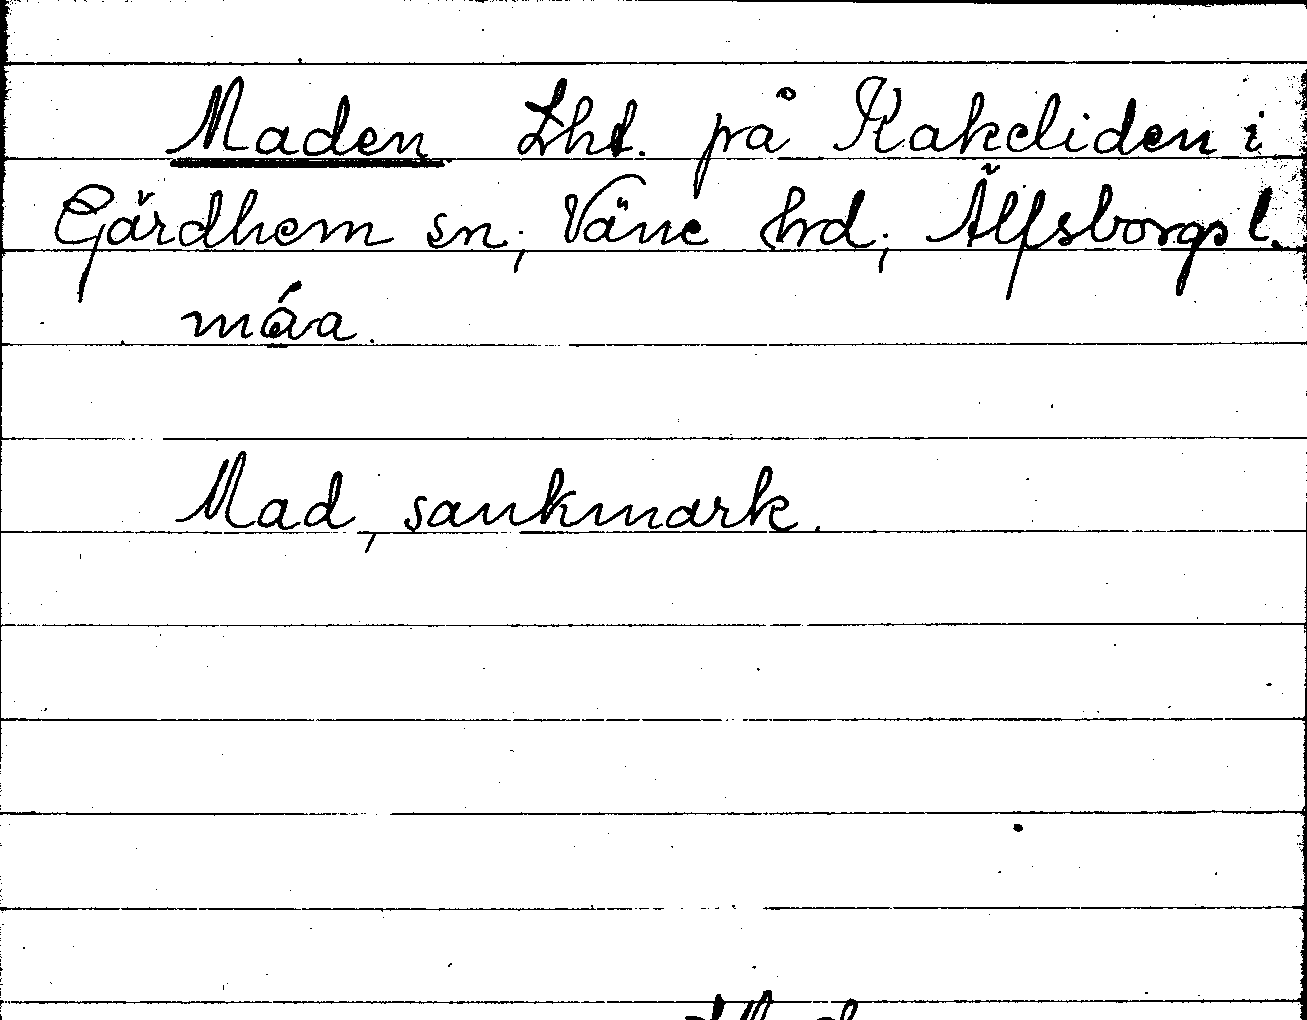 Maden Lht. på Kakeliden i
Gärdhem sn; Väne hrd; Älfsborgs l.
máa.
Mad, sankmark.